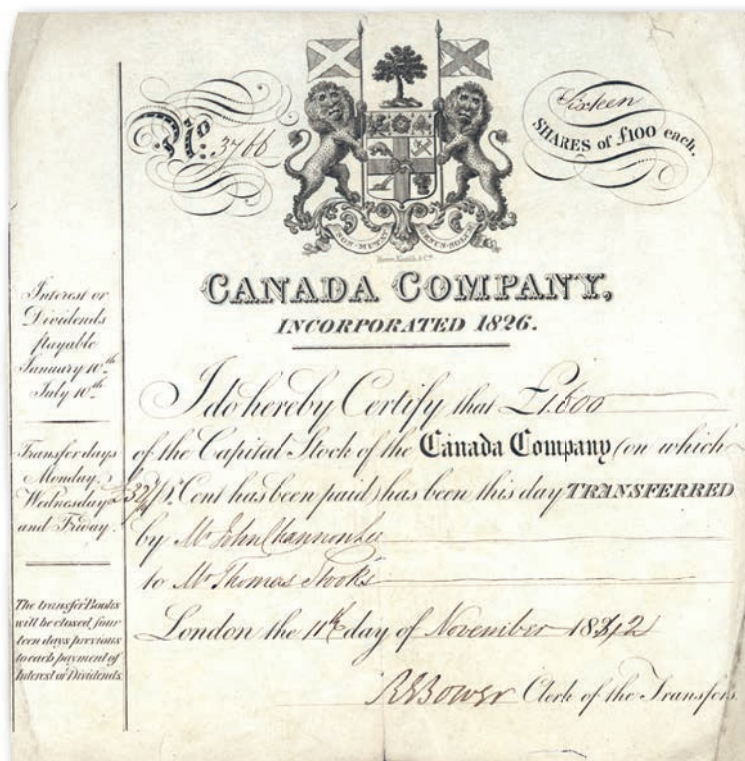 No. 3766
Sixteen
SHARES of £100 each.
NON MUTAT GENUS SOLUM
CANADA COMPANY,
INCORPORATED 1826.
Interest or
Dividends
payable
January 10th
July 10th
Transfer days
Monday,
Wednesday
and Friday.
The transfer Books
will be closed four
teen days previous
to each payment of
Interest or Dividends
I do hereby Certify that £1600
of the Capital Stock of the Canada Company (on which
Cent has been paid) has been this day TRANSFERRED
by Mr John Channon Lee
to Mr Thomas Stooks
London the 11th day of November 1842
Clerk of the Transfers.